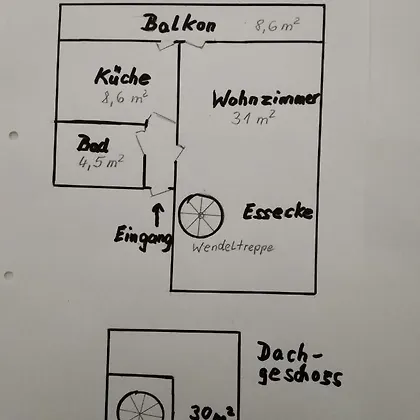 Balkon 8,6 m²
Küche
8,6 m²
Wohnzimmer
31 m²
Bad
4,5 m²
Essecke
Eingang
Wendeltreppe
Dach-
geschoss
30 m²